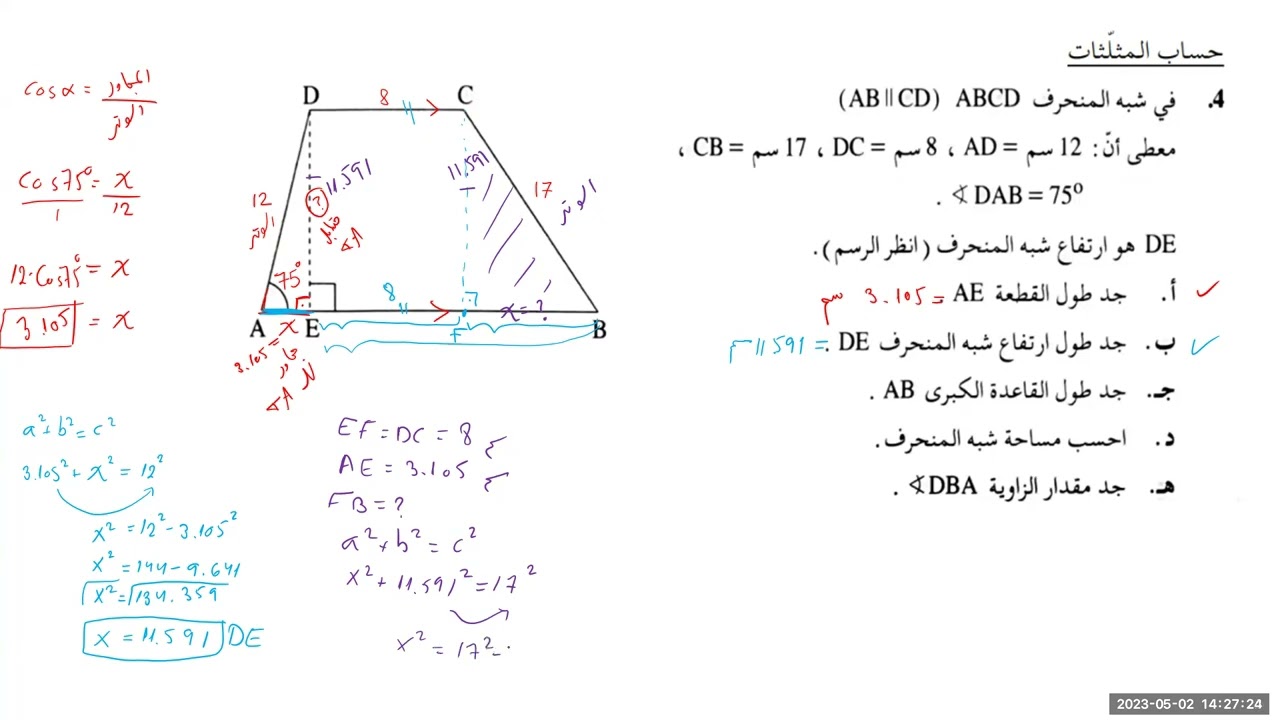 حساب المثلّثات
4. في شبه المنحرف ABCD (AB || CD)
معطى أنّ: 12 سم = AD ، 8 سم = DC ، 17 سم = CB ،
∢ DAB = 75° .
DE هو ارتفاع شبه المنحرف (انظر الرسم).
أ. جد طول القطعة AE = 3.105 سم ✓
ب. جد طول ارتفاع شبه المنحرف DE . = 11.591 سم ✓
جـ. جد طول القاعدة الكبرى AB .
د. احسب مساحة شبه المنحرف.
هـ. جد مقدار الزاوية ∢DBA .
cos α = المجاور / الوتر
Cos 75° / 1 = x / 12
12·Cos75° = x
3.105 = x
D 8 C
12 الوتر
11.591
?
مقابل
∢A
11.591
17 الوتر
75°
8
x = ?
A E F B
x
3.105 =
∢A
a² + b² = c²
3.105² + x² = 12²
x² = 12² - 3.105²
x² = 144 - 9.641
√x² = √134.359
x = 11.591 DE
EF = DC = 8
AE = 3.105
FB = ?
a² + b² = c²
x² + 11.591² = 17²
x² = 17² -
2023-05-02 14:27:24